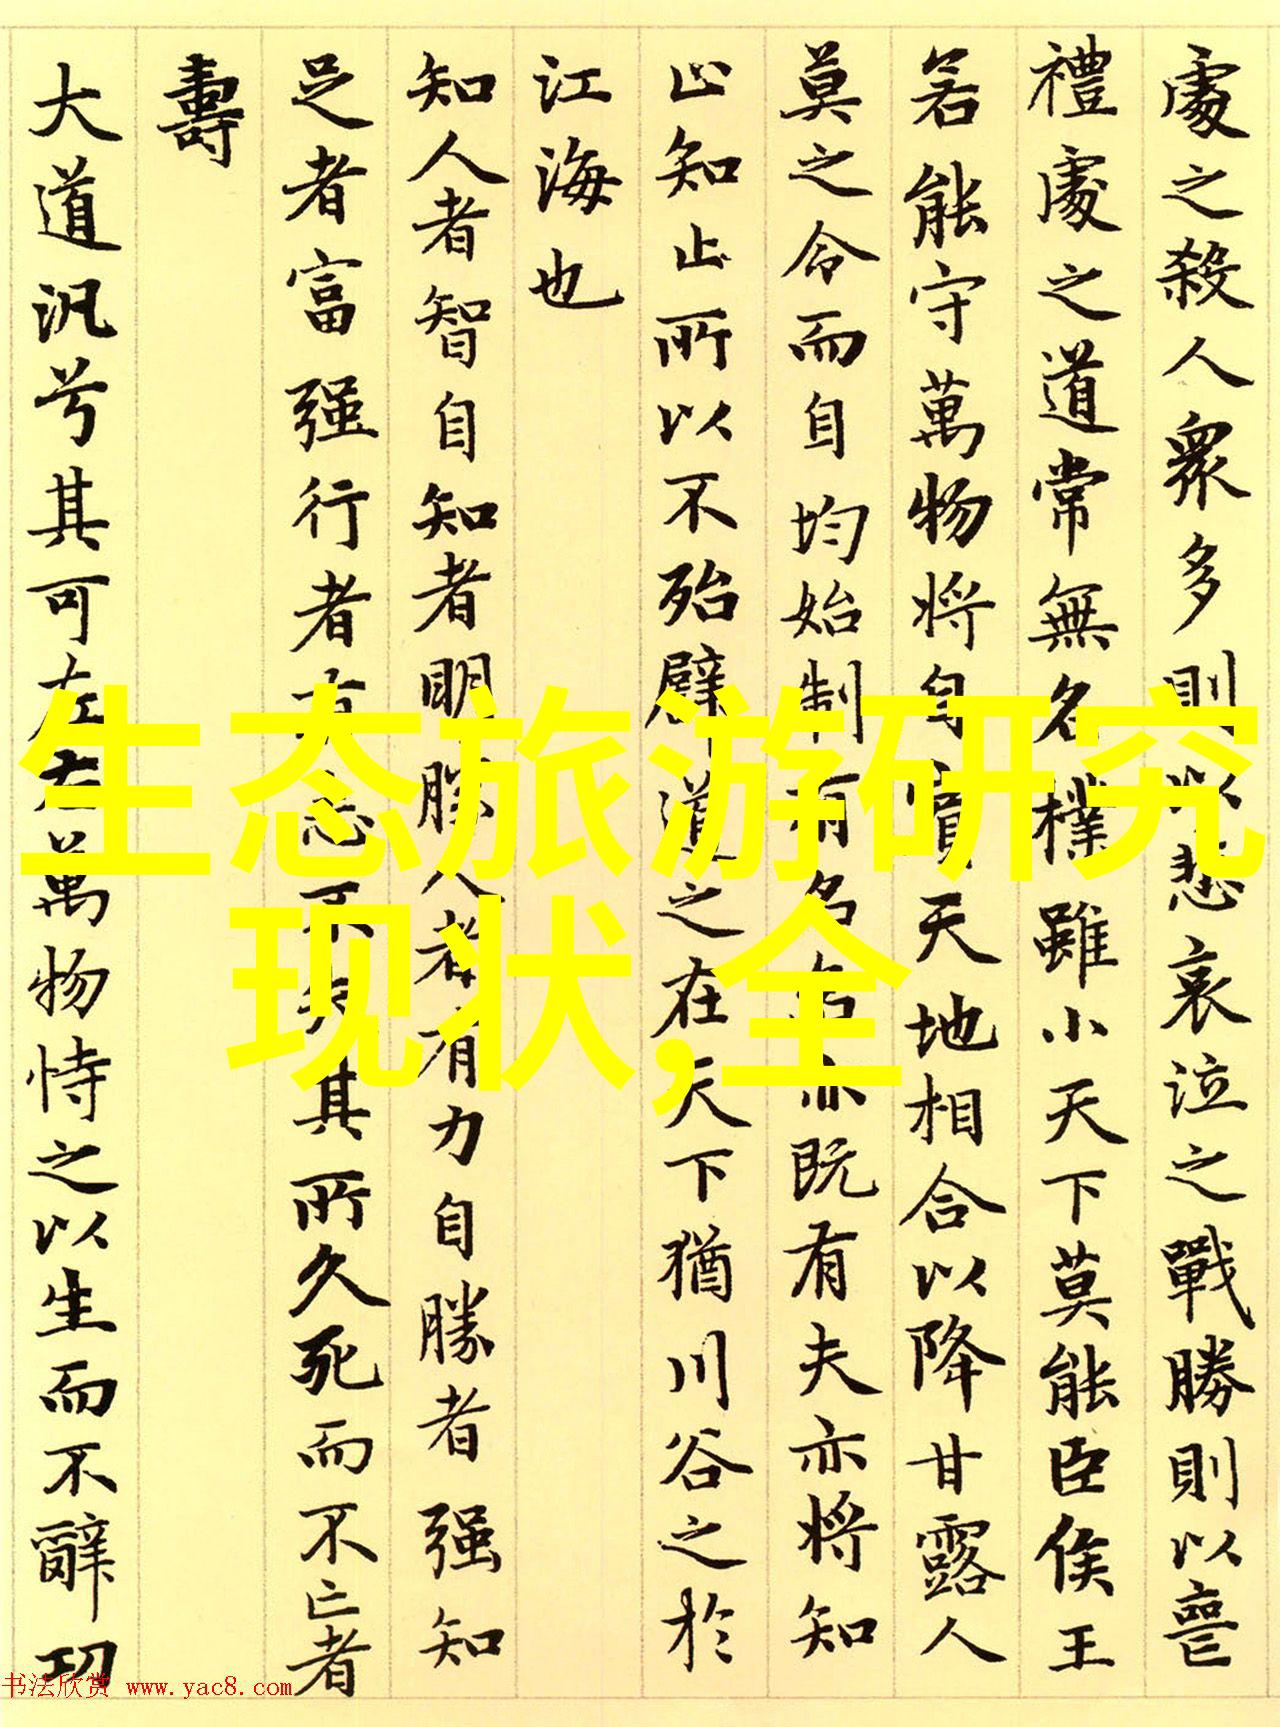 處之殺人衆多則以悲哀泣之戰勝則以喪
禮處之道常無名樸雖小天下莫能臣侯王
若能守萬物將自賓天地相合以降甘露人
莫之令而自均始制有名名亦既有夫亦將知
止知止所以不殆譬道之在天下猶川谷之於
江海也
知人者智自知者明勝人者有力自勝者强知
足者富强行者有志不失其所久死而不亡者
壽
大道汎兮其可左右萬物恃之以生而不辭功
生态旅游研究
现状,全
书法欣赏 www.yac8.com